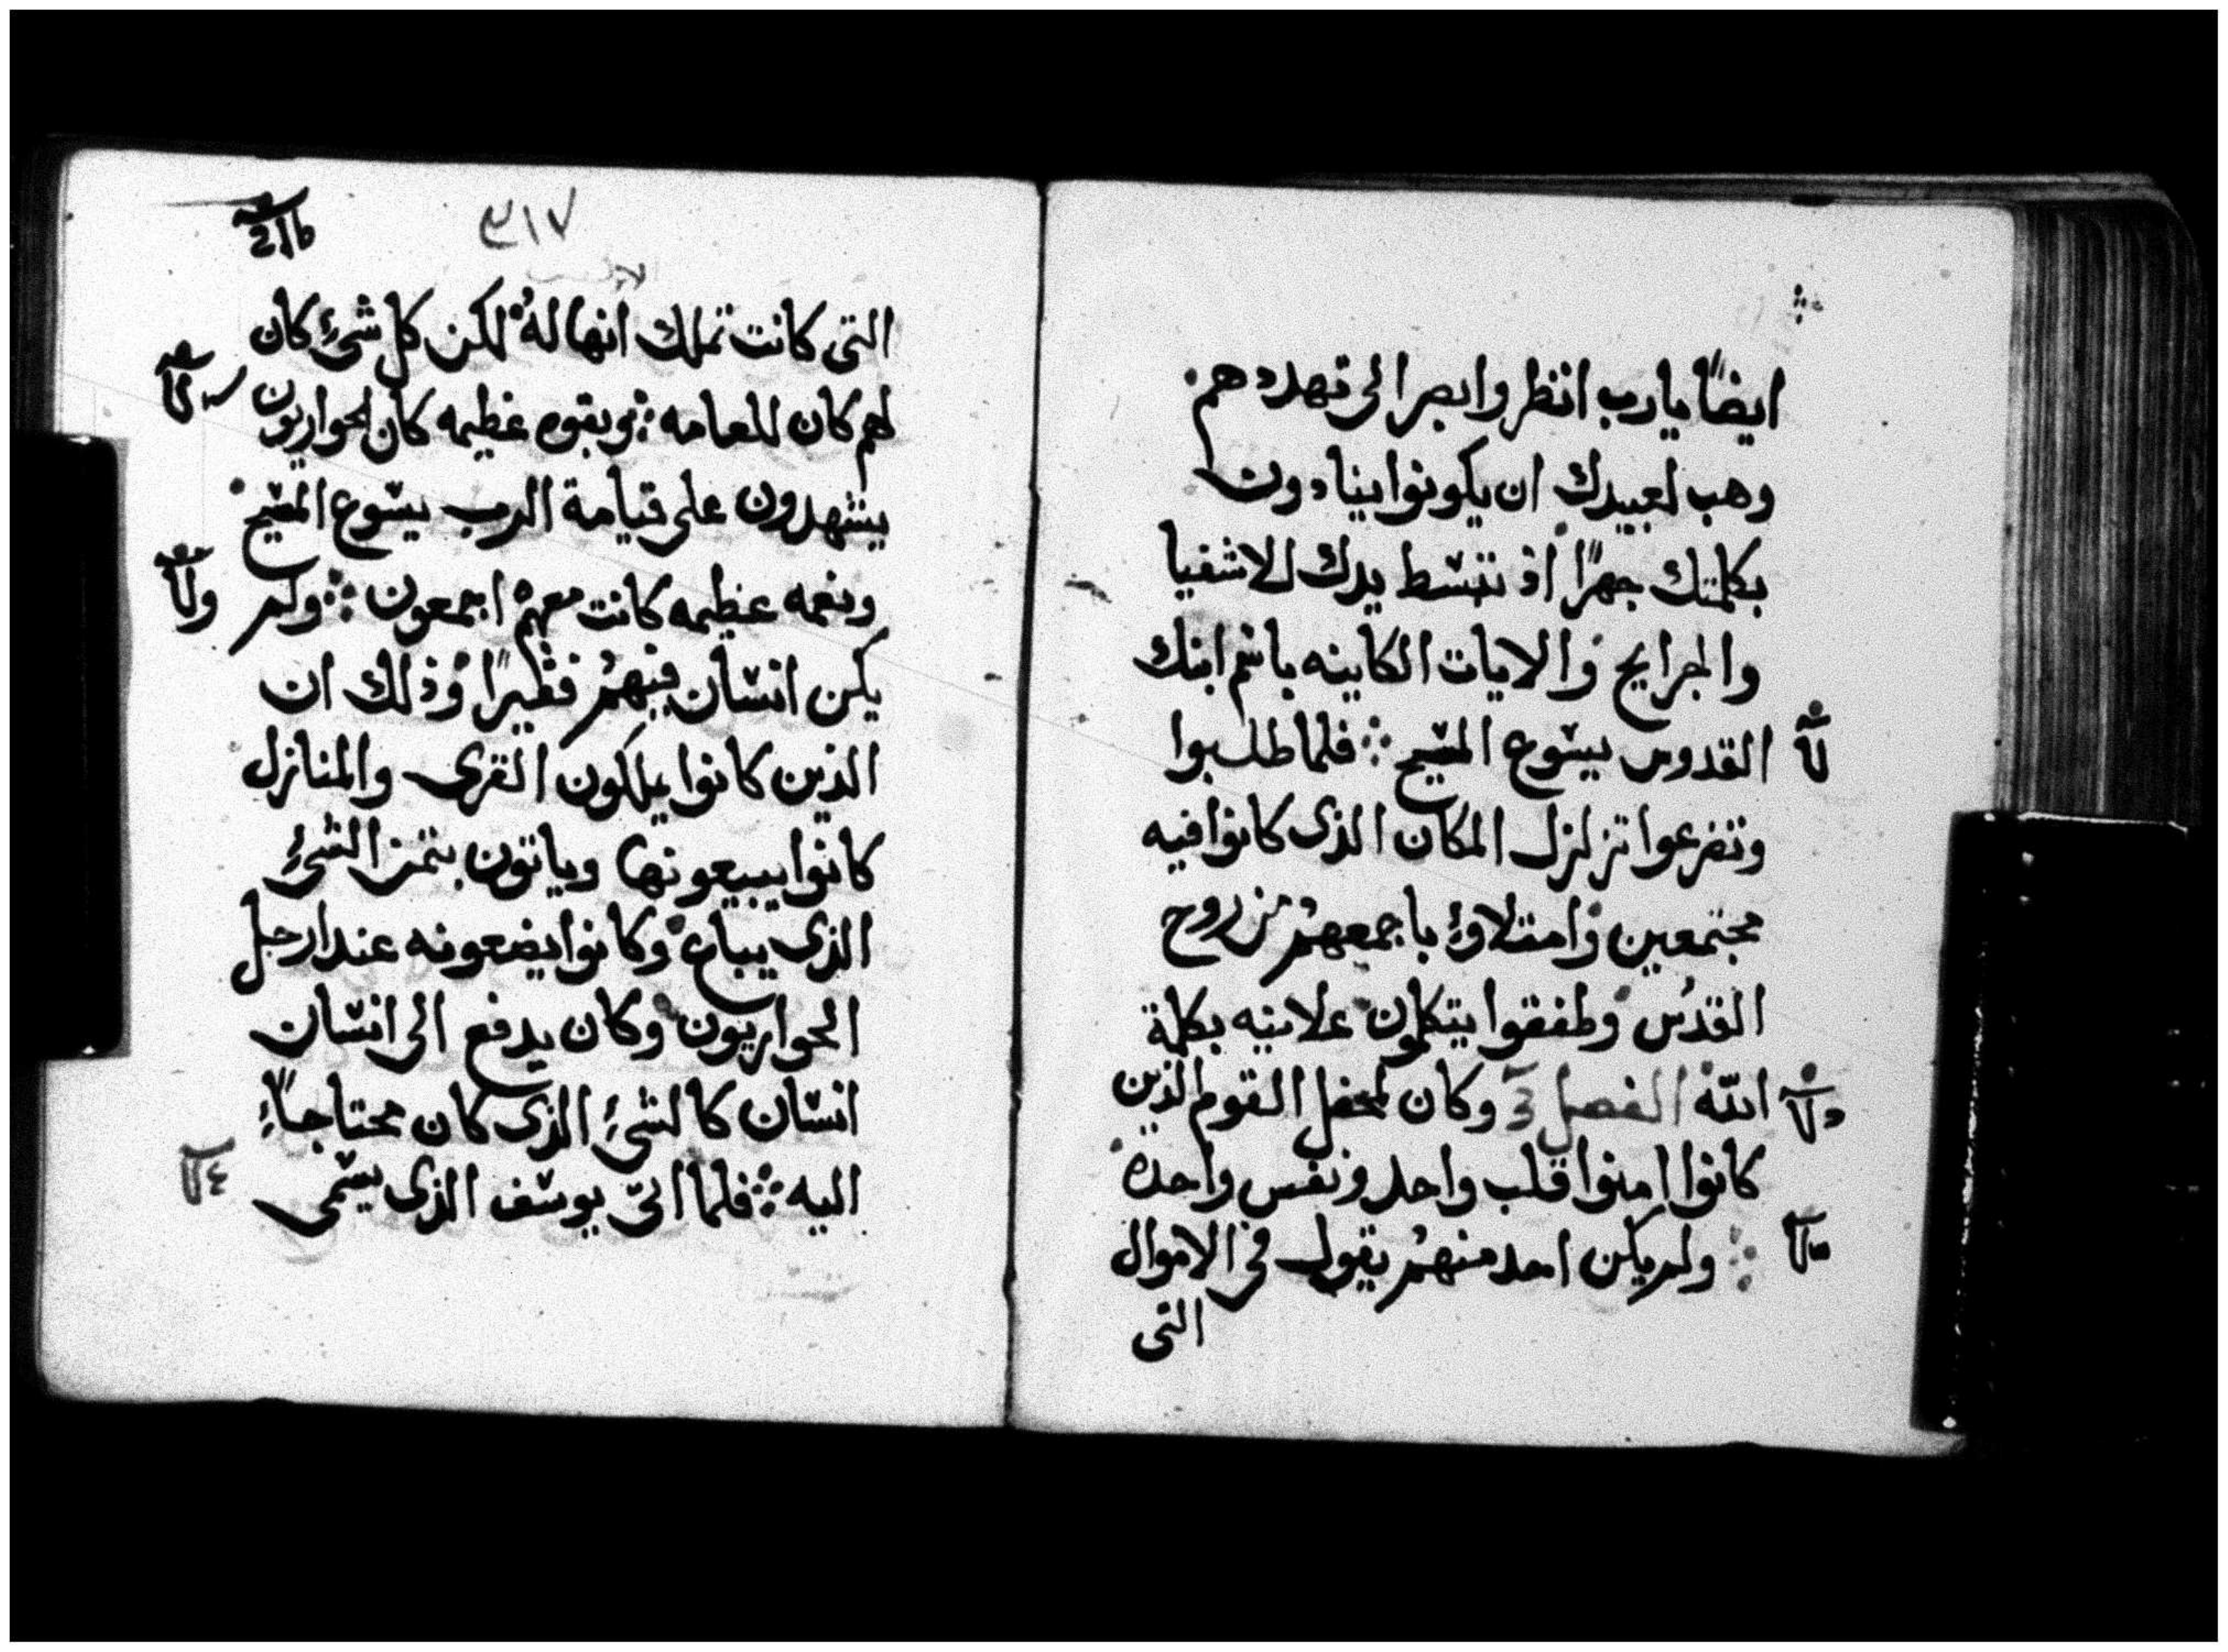 ايضًا يا رب انظر وابصر الى تهددهم
وهب لعبيدك ان يكونوا ينادون
بكلمتك جهرًا اذ تبسط يدك للاشفيا
والجرايح والايات الكاينه باسم ابنك
القدوس يسوع المسيح فلما طلبوا
وتضرعوا تزلزل المكان الذى كانوا فيه
مجتمعين وامتلاوء باجمعهم من روح
القدس وطفقوا يتكلمون علانيه بكلمة
الله الفصل وكان لمحفل القوم الذين
كانوا امنوا قلب واحد ونفس واحده
ولم يكن احد منهم يقول فى الاموال
التى
٣١٧
التى كانت تملك انها له لكن كل شىء كان
لهم كان للعامه وبقوه عظيمه كان الحواريون
يشهدون على قيامة الرب يسوع المسيح
ونعمه عظيمه كانت معهم اجمعون ولم
يكن انسان فيهم فقيرًا وذلك ان
الذين كانوا يملكون القرى والمنازل
كانوا يبيعونها وياتون بثمن الشىء
الذى يباع وكانوا يضعونه عند ارجل
الحواريون وكان يدفع الى انسان
انسان كالشىء الذى كان محتاجًا
اليه فلما اتى يوسف الذى يسمى